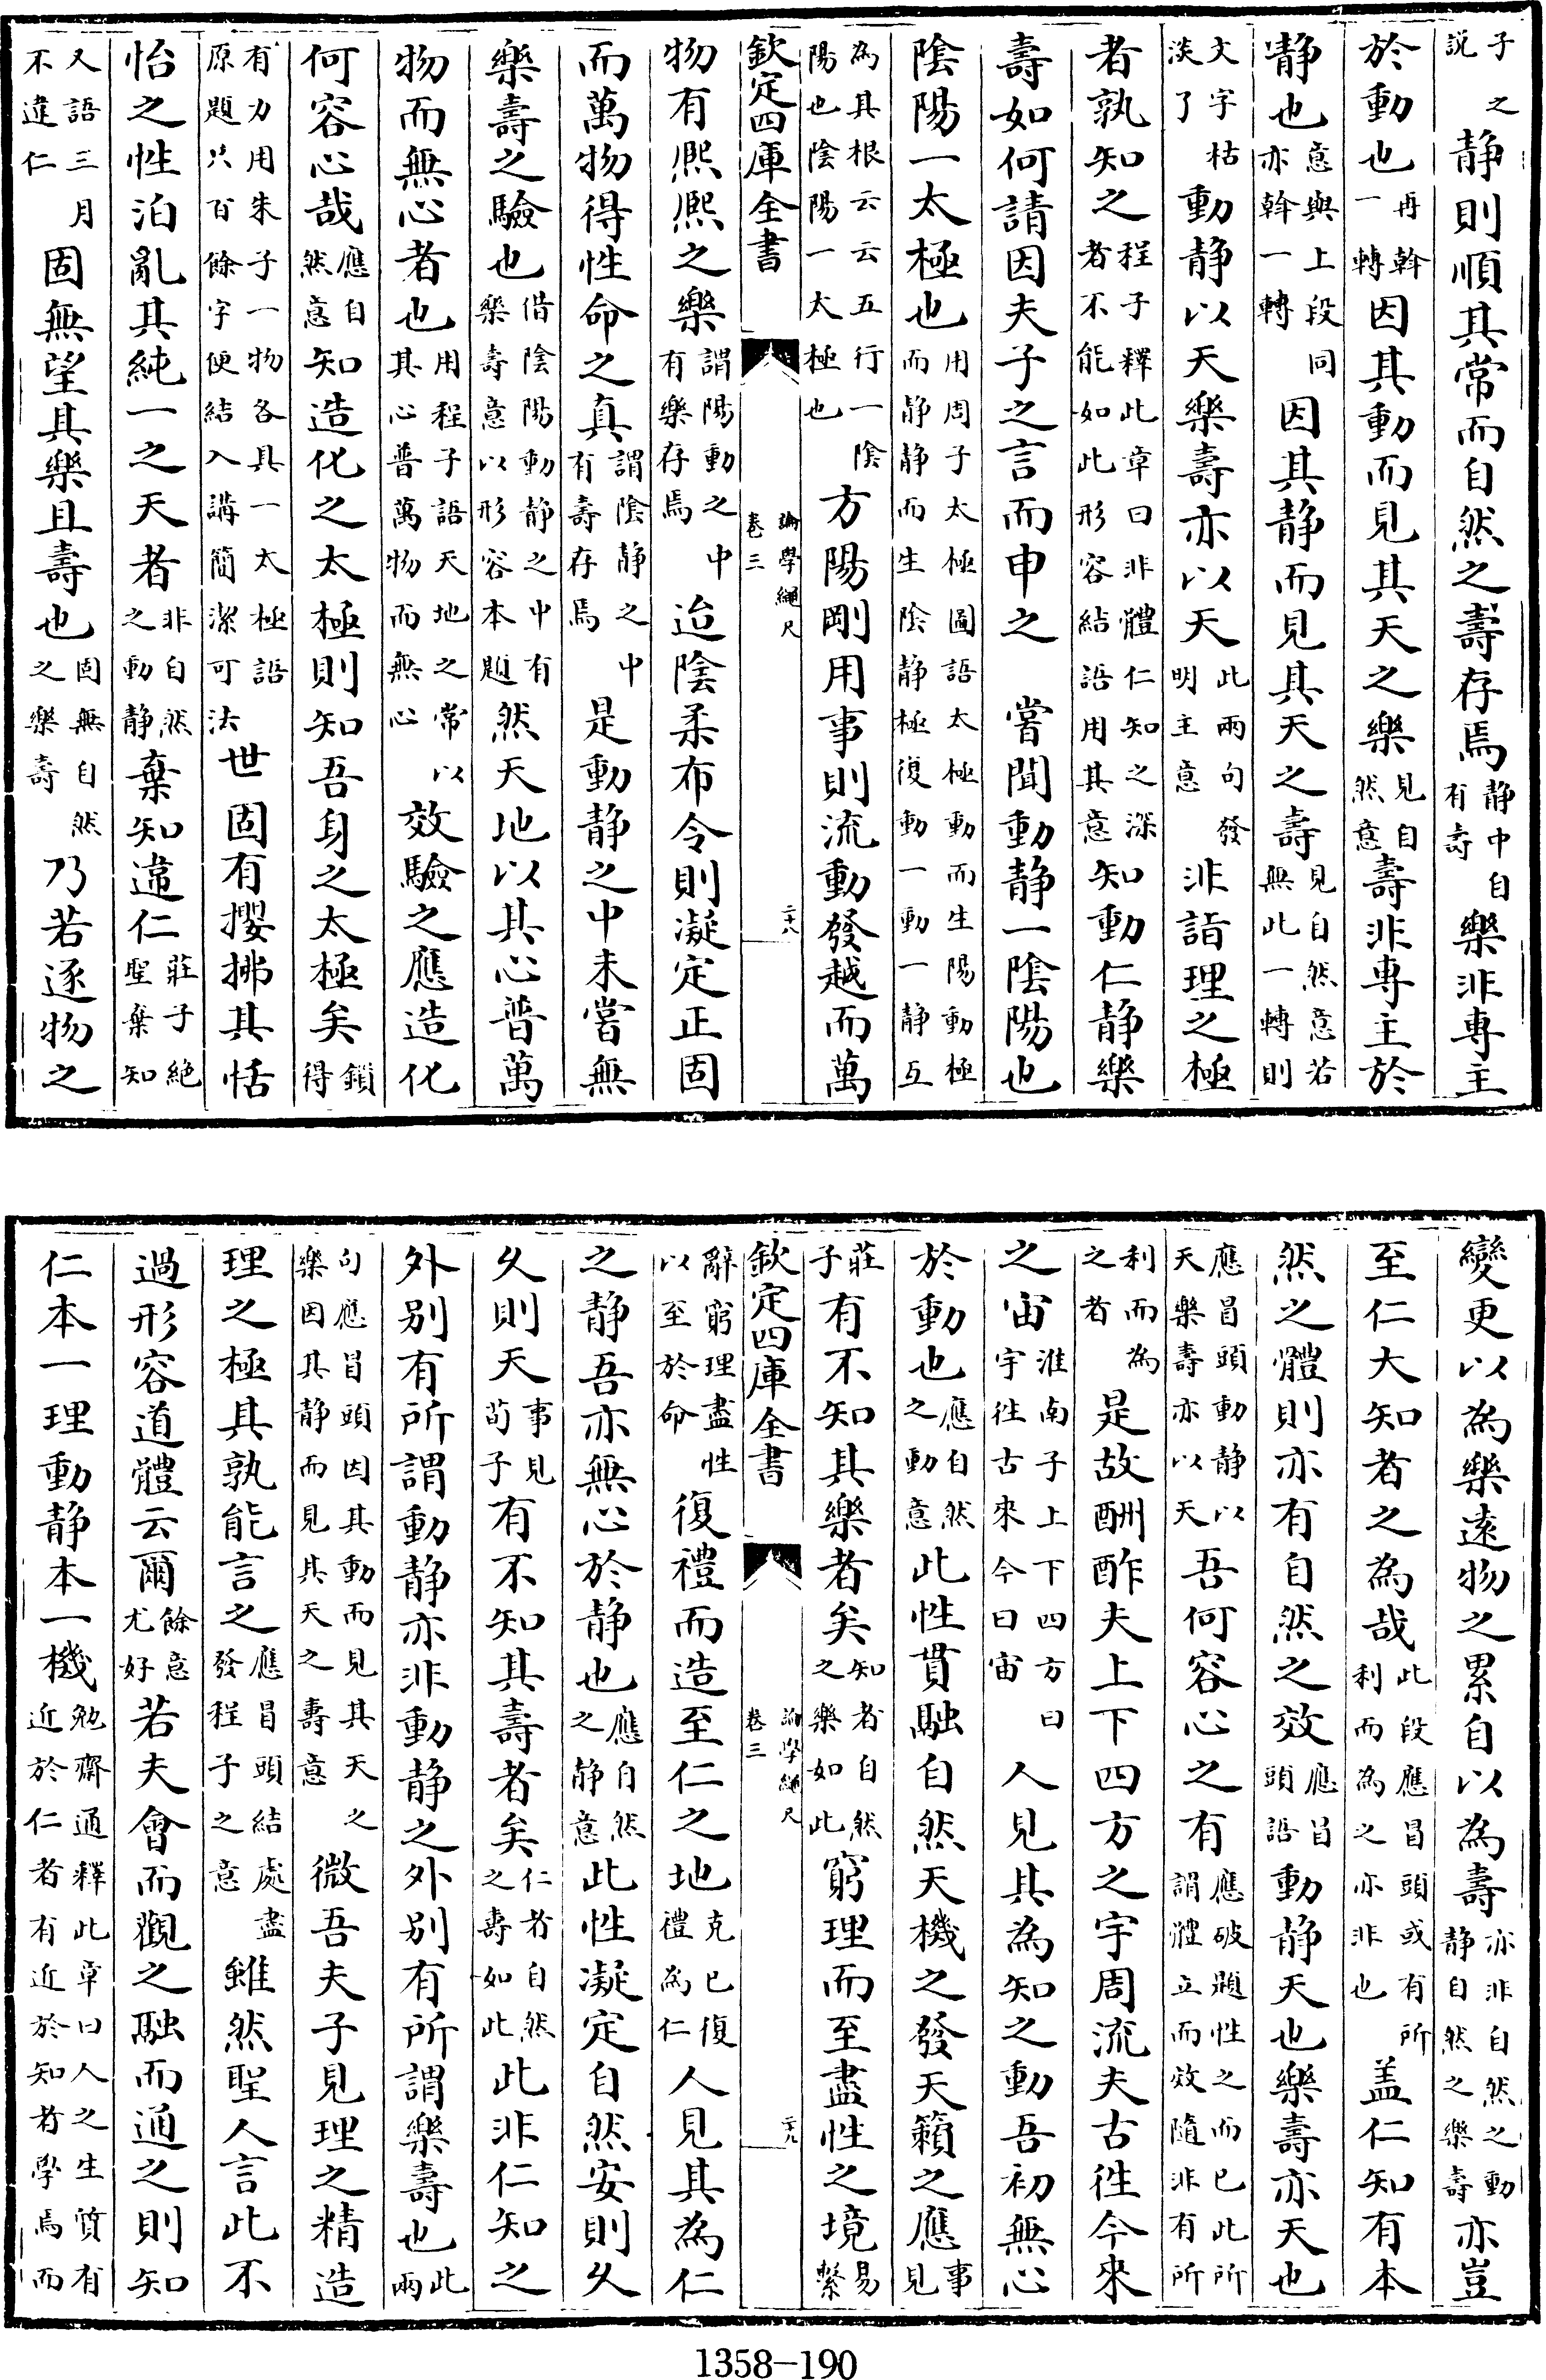 子之說静則順其常而自然之壽存焉静中自有壽樂非專主
於動也再斡一轉因其動而見其天之樂見自然意壽非專主於
静也意與上段同亦斡一轉因其静而見其天之壽見自然意若無此一轉則
文字枯淡了動静以天樂壽亦以天此兩句發明主意非詣理之極
者孰知之程子釋此章曰非體仁知之深者不能如此形容結語用其意知動仁静樂
壽如何請因夫子之言而申之　嘗聞動静一隂陽也
隂陽一太極也用周子太極圖語太極動而生陽動極而静静而生隂静極復動一動一静互
為其根云云五行一隂陽也隂陽一太極也方陽剛用事則流動發越而萬
欽定四庫全書　論學繩尺卷三　二十八
物有熈熈之樂謂陽動之中有樂存焉迨隂柔布令則凝定正固
而萬物得性命之真謂隂静之中有壽存焉是動静之中未嘗無
樂壽之驗也借隂陽動静之中有樂壽意以形容本題然天地以其心普萬
物而無心者也用程子語天地之常以其心普萬物而無心效驗之應造化
何容心哉應自然意知造化之太極則知吾身之太極矣鎖得
有力用朱子一物各具一太極語原題只百餘字便結入講簡潔可法世固有攖拂其恬
怡之性汩亂其純一之天者非自然之動静棄知違仁莊子絶聖棄知
又語三月不違仁固無望其樂且壽也固無自然之樂壽乃若逐物之
變更以為樂遠物之累自以為壽亦非自然之動静自然之樂壽亦豈
至仁大知者之為哉此段應冒頭或有所利而為之亦非也盖仁知有本
然之體則亦有自然之效應冒頭語動静天也樂壽亦天也
應冒頭動静以天樂壽亦以天吾何容心之有應破題性之而已此所謂體立而效隨非有所
利而為之者是故酬酢夫上下四方之宇周流夫古徃今來
之宙淮南子上下四方曰宇徃古來今曰宙人見其為知之動吾初無心
於動也應自然之動意此性貫融自然天機之發天籟之應事見
莊子有不知其樂者矣知者自然之樂如此窮理而至盡性之境易繫
欽定四庫全書　論學繩尺卷三　二十九
辭窮理盡性以至於命復禮而造至仁之地克已復禮為仁人見其為仁
之静吾亦無心於静也應自然之静意此性凝定自然安則久
久則天事見荀子有不知其壽者矣仁者自然之壽如此此非仁知之
外别有所謂動静亦非動静之外别有所謂樂壽也此兩
句應冒頭因其動而見其天之樂因其静而見其天之壽意微吾夫子見理之精造
理之極其孰能言之應冒頭結處盡發程子之意雖然聖人言此不
過形容道體云爾餘意尤好若夫會而觀之融而通之則知
仁本一理動静本一機勉齋通釋此章曰人之生質有近於仁者有近於知者學焉而
1358—190